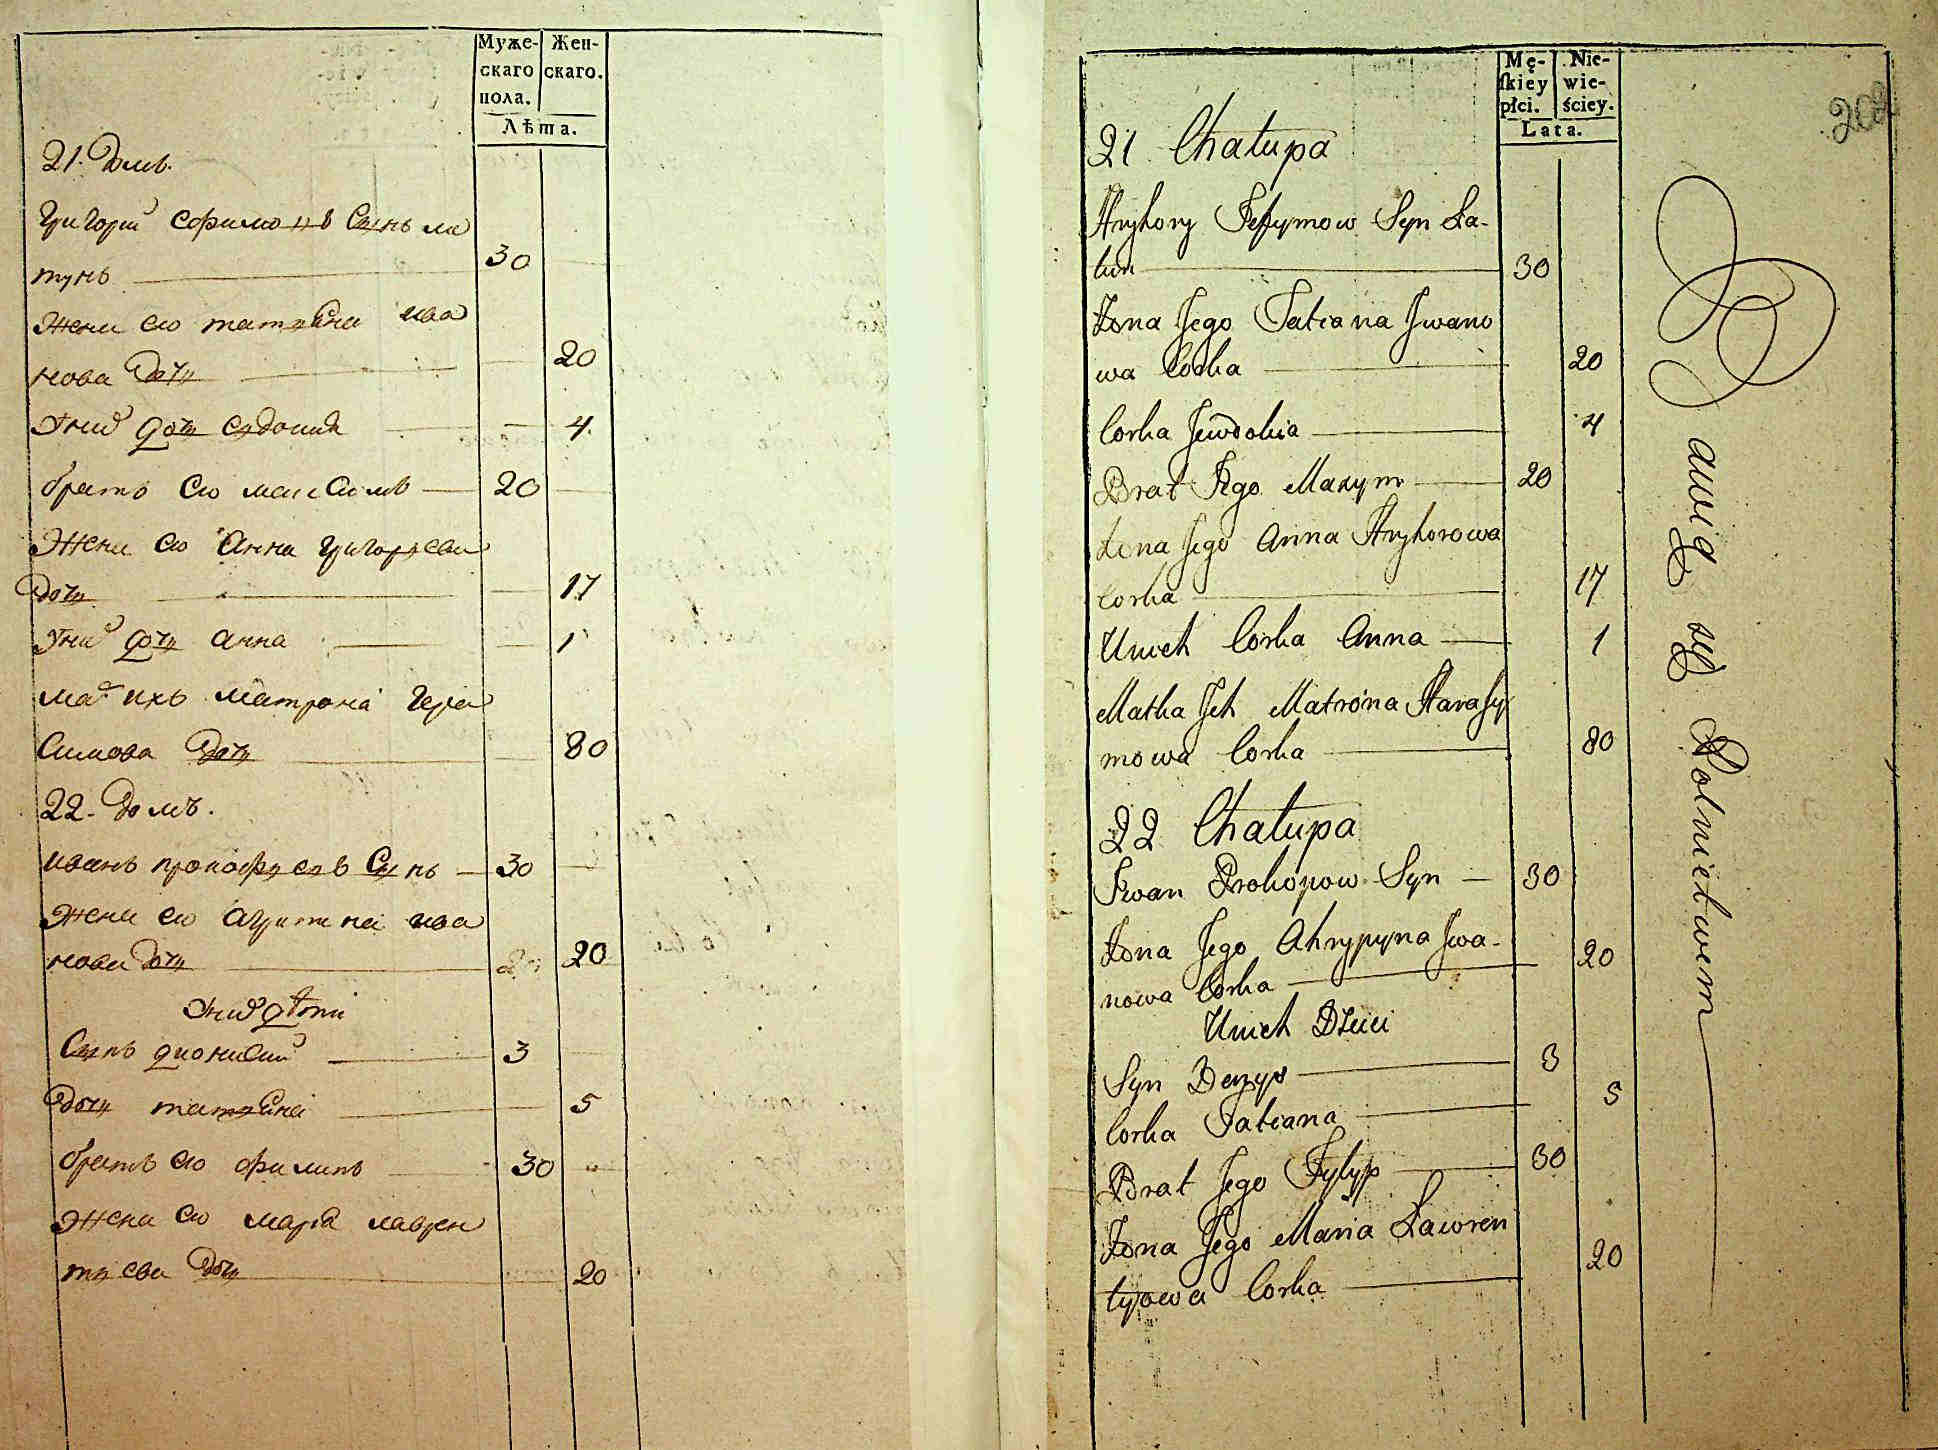 Муже-
скаго
пола.
Жен-
скаго.
Лѣта.
21. Домъ.
Григорій Ефимовъ Сынъ ла
тунъ 30
Жена его татьяна ива
нова Дочь 20
Униꙋ дочь Евдокия 4
братъ его максимъ 20
Жена его Анна григорьева
Дочь 17
Унихъ дочь анна 1
мать ихъ матрона гера
симова Дочь 80
22. домъ.
иванъ прокофьевъ Сынъ 30
Жена его агрипина ива
нова Дочь 20
Унихъ дѣти
Сынъ дионисий 3
Дочь татьяна 5
братъ его филипъ 30
Жена его марья лаврен
тьева Дочь 20
Mę-
skiey
płci.
Nie-
wie-
ściey.
Lata.
202
21 Chałupa
Hryhory Jefymow Syn Ła-
tun 30
Żona Jego Tatiana Jwano
wa Corka 20
Corka Jewdokia 4
Brat Jego Maxym 20
Żona Jego Anna Hryhorowa
Corka 17
Unich Corka Anna 1
Matka Jch Matróna Harasy
mowa Corka 80
22 Chałupa
Iwan Prokopow Syn 30
Żona Jego Ahrypyna Jwa-
nowa Corka 20
Unich Dzieci
Syn Denys 3
Corka Tatiana 5
Brat Jego Fylyp 30
Żona Jego Maria Ławren
tyowa Corka 20
Bawią się Rolnictwem